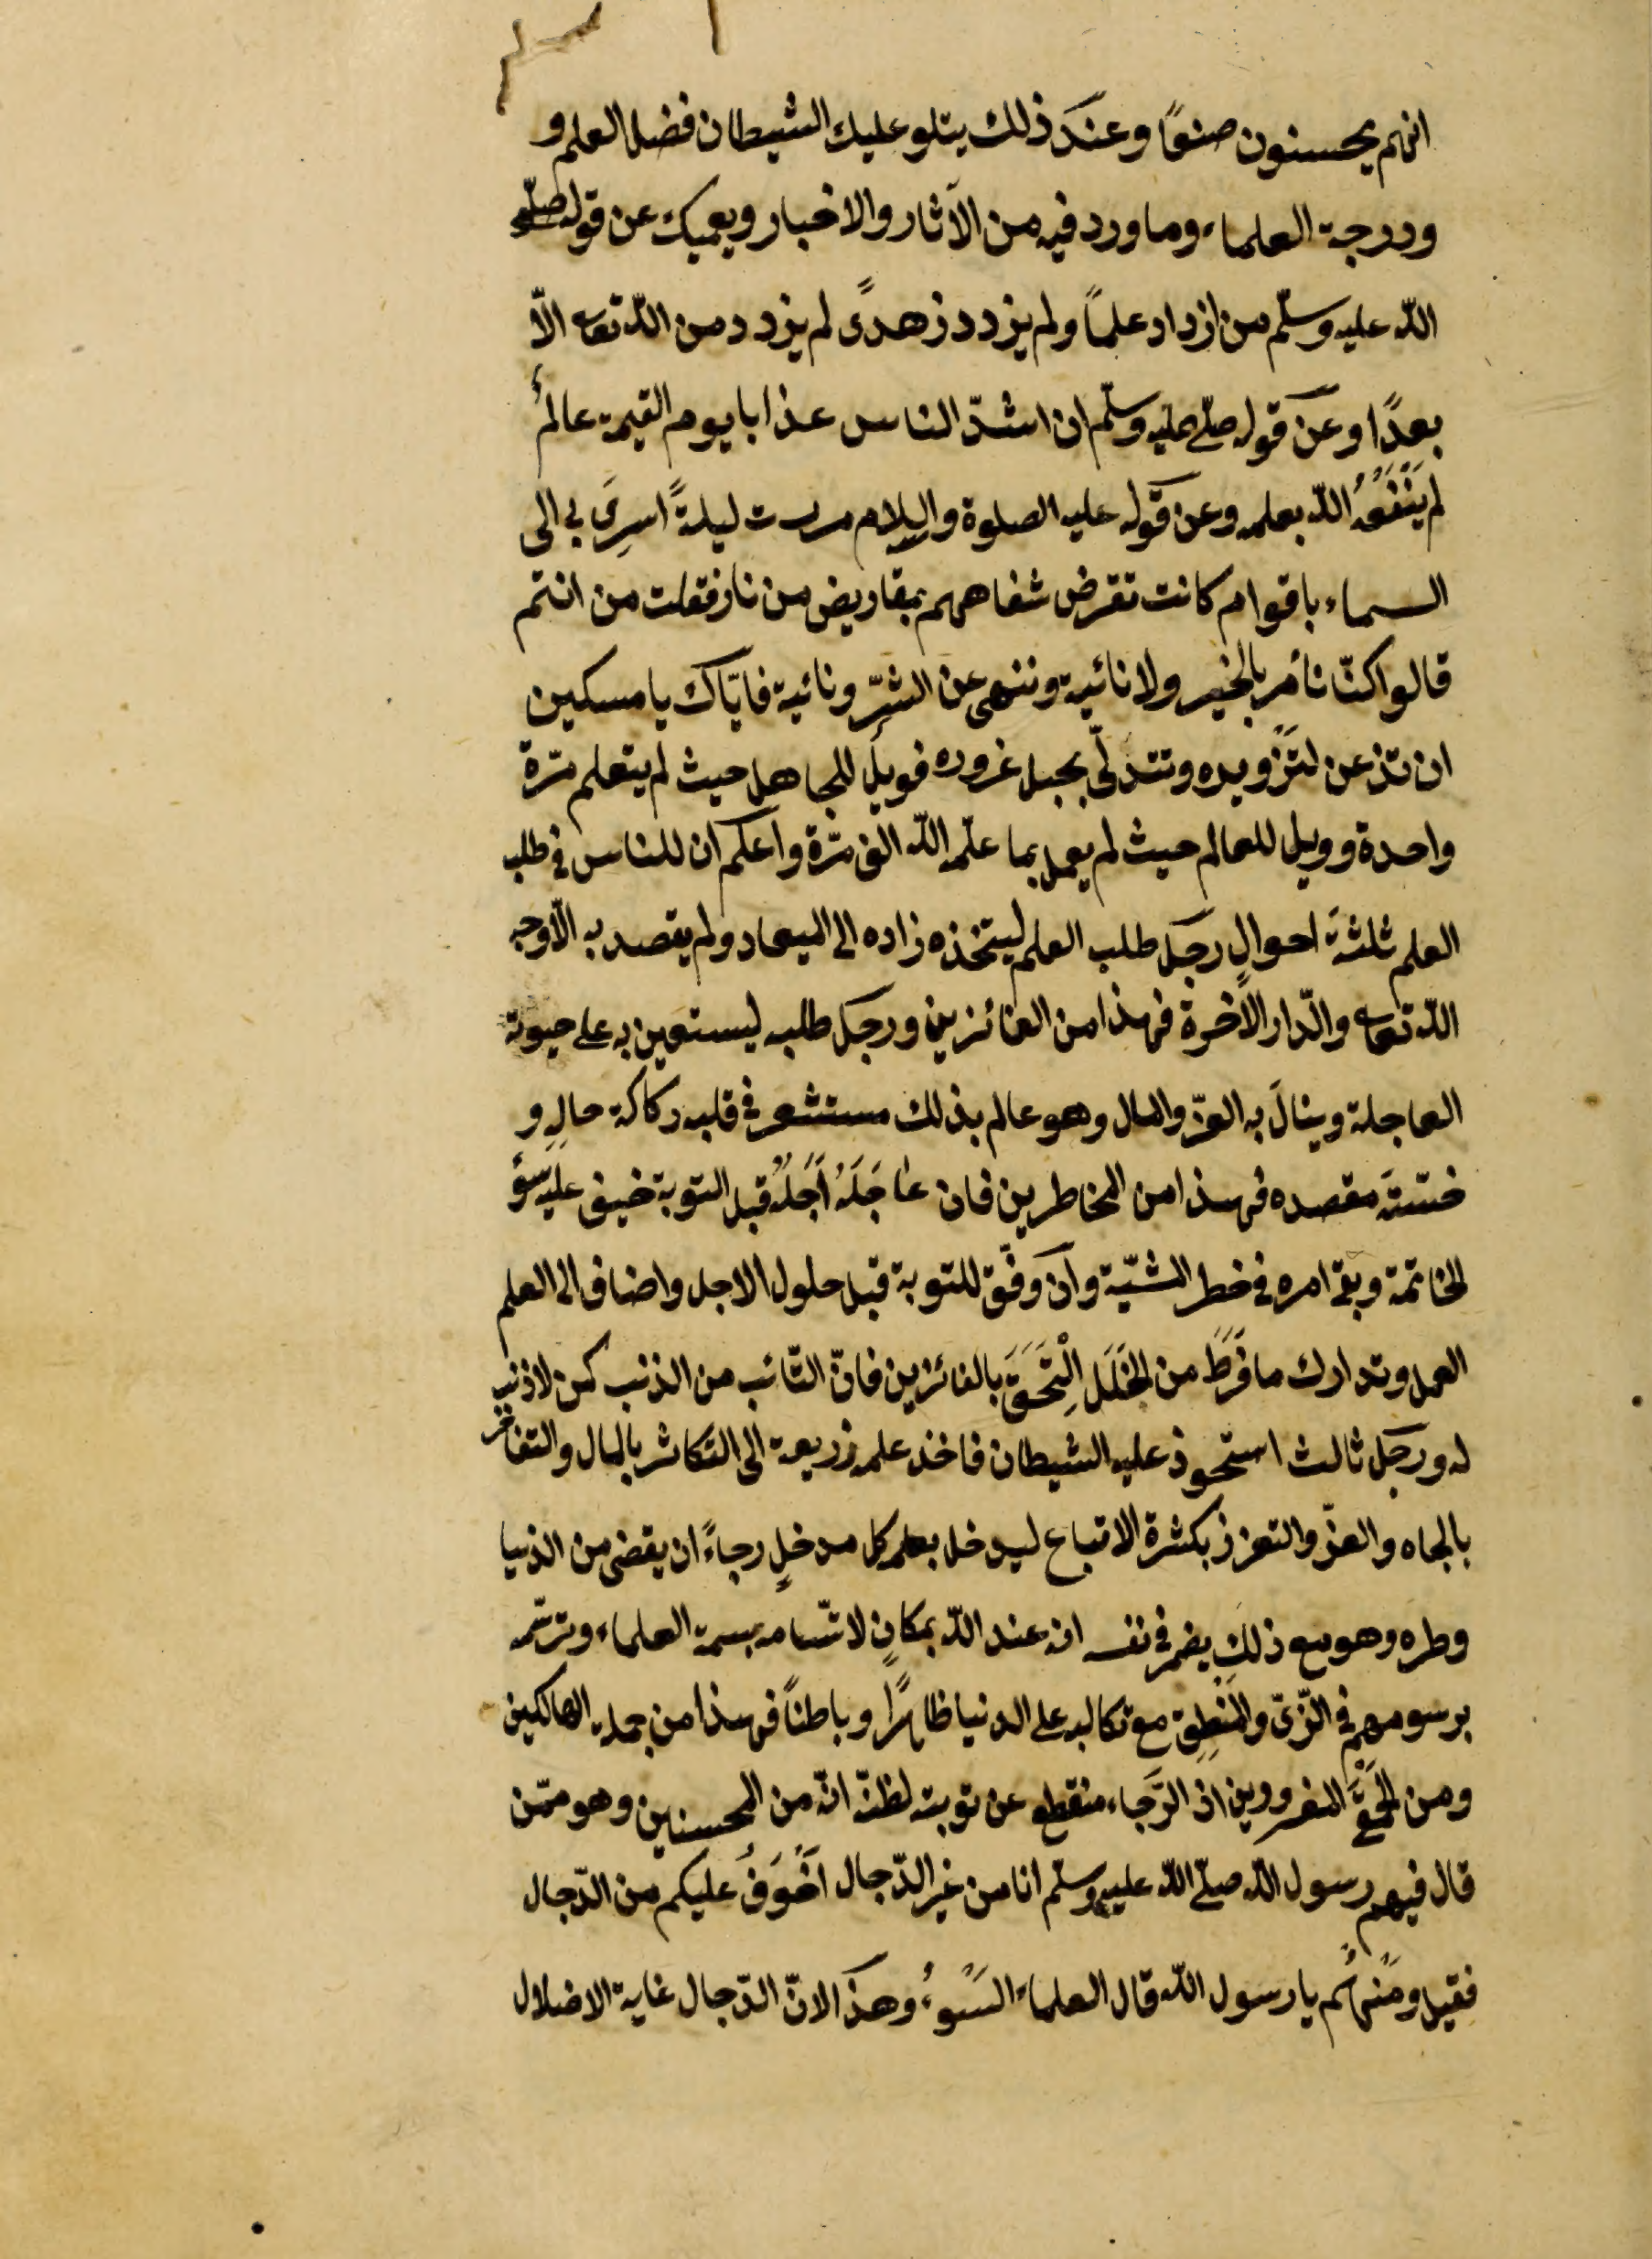 انهم يحسنون صنعًا وعند ذلك يتلو عليك الشيطان فضل العلم و
ودرجة العلماء وما ورد فيه من الآثار والاخبار ويعميك عن قوله صلّى
اللّه عليه وسلّم من ازداد علمًا ولم يزدد زهدًى لم يزدد من اللّه تعه الّا
بعدًا وعن قوله صلّى عليه وسلّم ان اشدّ الناس عذابا يوم القيمة عالمٌ
لم يَنْفَعْهُ اللّه بعلمه وعن قوله عليه الصلوة والسلام مررت ليلةً اسرِىَ بى الى
السماء باقوام كانت تقرض شفاههم بمقاريض من نار فقلت من انتم
قالوا كنّا نأمر بالخير ولا نائيه وننهى عن الشرّ ونائيه فايّاك يا مسكين
ان تذعن لتزويره وتتدلّى بحبل غروره فويل للجاهل حيث لم يتعلم مرّة
واحدة وويل للعالم حيث لم يعمل بما علّمه اللّه الف مرّة واعلم ان للناس فى طلب
العلم ثلثة احوالٍ رجل طلب العلم ليتخذه زاده الى الميعاد ولم يقصد به الّا وجه
اللّه تعه والدّار الآخرة فهذا من الفائزين ورجل طلبه ليستعين به على حيوته
العاجلة وينالَ به العزّ والمال وهو عالم بذلك مستشعر فى قلبه ركاكة حالِ و
خسّتة مقصده فهذا من المخاطرين فان عاجَلَهُ اَجَلُهُ قبل التوبة خيف عليه سوٓء
الخاتمة وبقى امره فى خطر المشيّة وان وفّق للتوبة قبل حلول الاجل واضاف الى العلم
العمل وتدارك ما فَرَطَ من الخَلَلِ اِلْتَحَقَ بالفائزين فانّ التّائب من الذنب كمن لا ذنب
له ورجل ثالث استحوذ عليه الشيطان فاخذ علمه زريعة الى التكاثر بالمال والتفاخر
بالجاه والعزّ والتعزز بكثرة الاتباع ليدخل بعلمه كل مدخلٍ رجاءً ان يقضى من الدنيا
وطره وهو مع ذلك يضمر فى نفسه انه عند اللّه بمكانٍ لاتّسامه بسمة العلماء وترسّمه
برسومهم فى الزّىّ والمنطِق مع تكالبه على الدنيا ظاهرًا وباطنًا فهذا من جملة الهالكين
ومن الحَمْقَى المغرورين اذ الرَّجاء منقطع عن توبته لظنّه انّه من المحسنين وهو ممّن
قال فيهم رسول اللّه صلّى اللّه عليه وسلّم انا من غير الدّجال اَخْوَفُ عليكم من الدّجال
فقيل ومَنْ هُم يا رسول اللّه قال العلماء السَّوءُ وهذا لانّ الدّجال غاية الاضلال